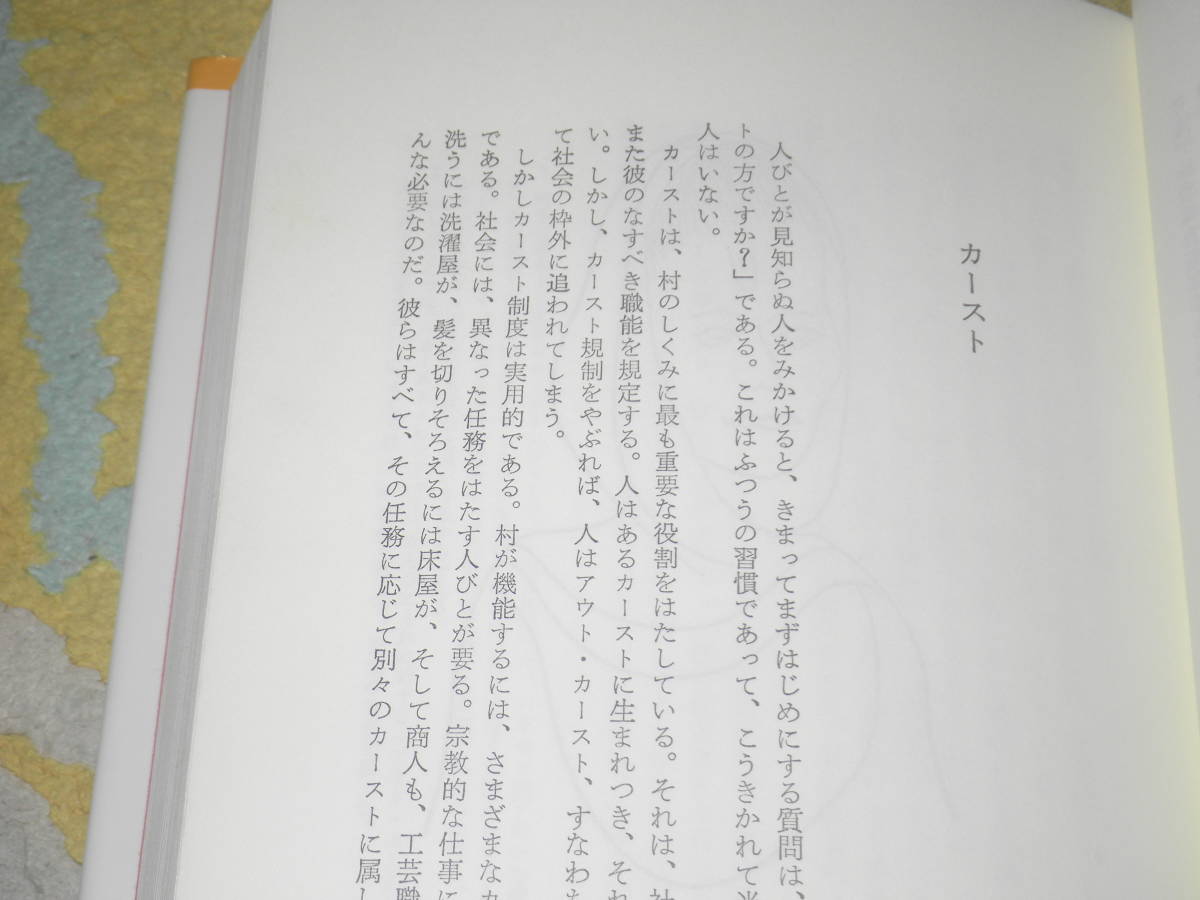 カースト
人びとが見知らぬ人をみかけると、きまってまずはじめにする質問は、
トの方ですか?」である。これはふつうの習慣であって、こうきかれて
人はいない。
カーストは、村のしくみに最も重要な役割をはたしている。それは、社
また彼のなすべき職能を規定する。人はあるカーストに生まれつき、それ
い。しかし、カースト規制をやぶれば、人はアウト・カースト、すなわち
て社会の枠外に追われてしまう。
しかしカースト制度は実用的である。村が機能するには、さまざまなカ
である。社会には、異なった任務をはたす人びとが要る。宗教的な仕事に
洗うには洗濯屋が、髪を切りそろえるには床屋が、そして商人も、工芸職
んな必要なのだ。彼らはすべて、その任務に応じて別々のカーストに属し